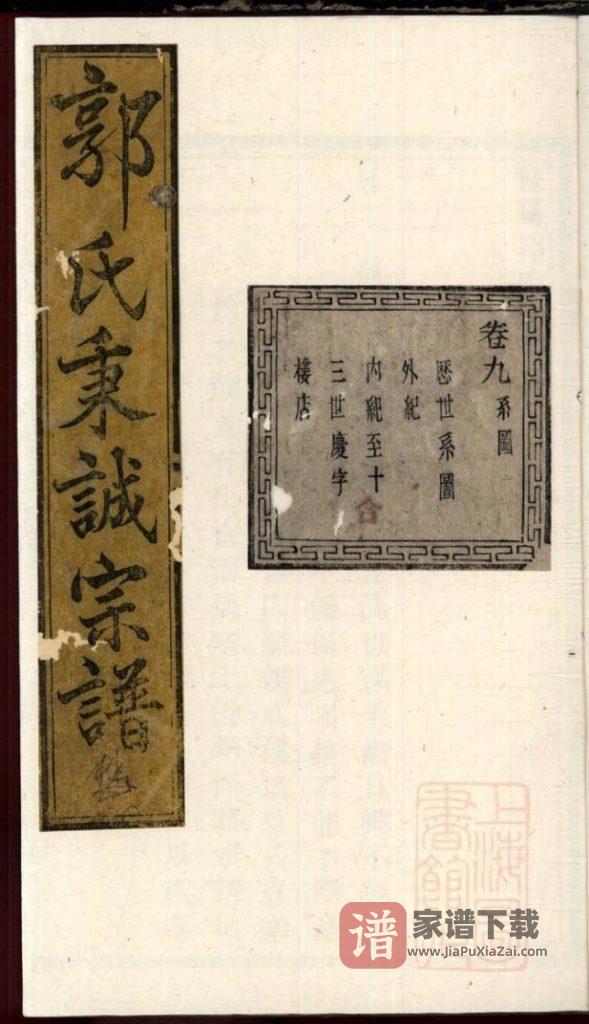 郭氏秉誠宗譜
卷九系圖
歷世系圖
外紀
內紀至十
三世慶字
樓店
合
上海圖
書館藏
谱 家谱下载
www.JiaPuXiaZai.com